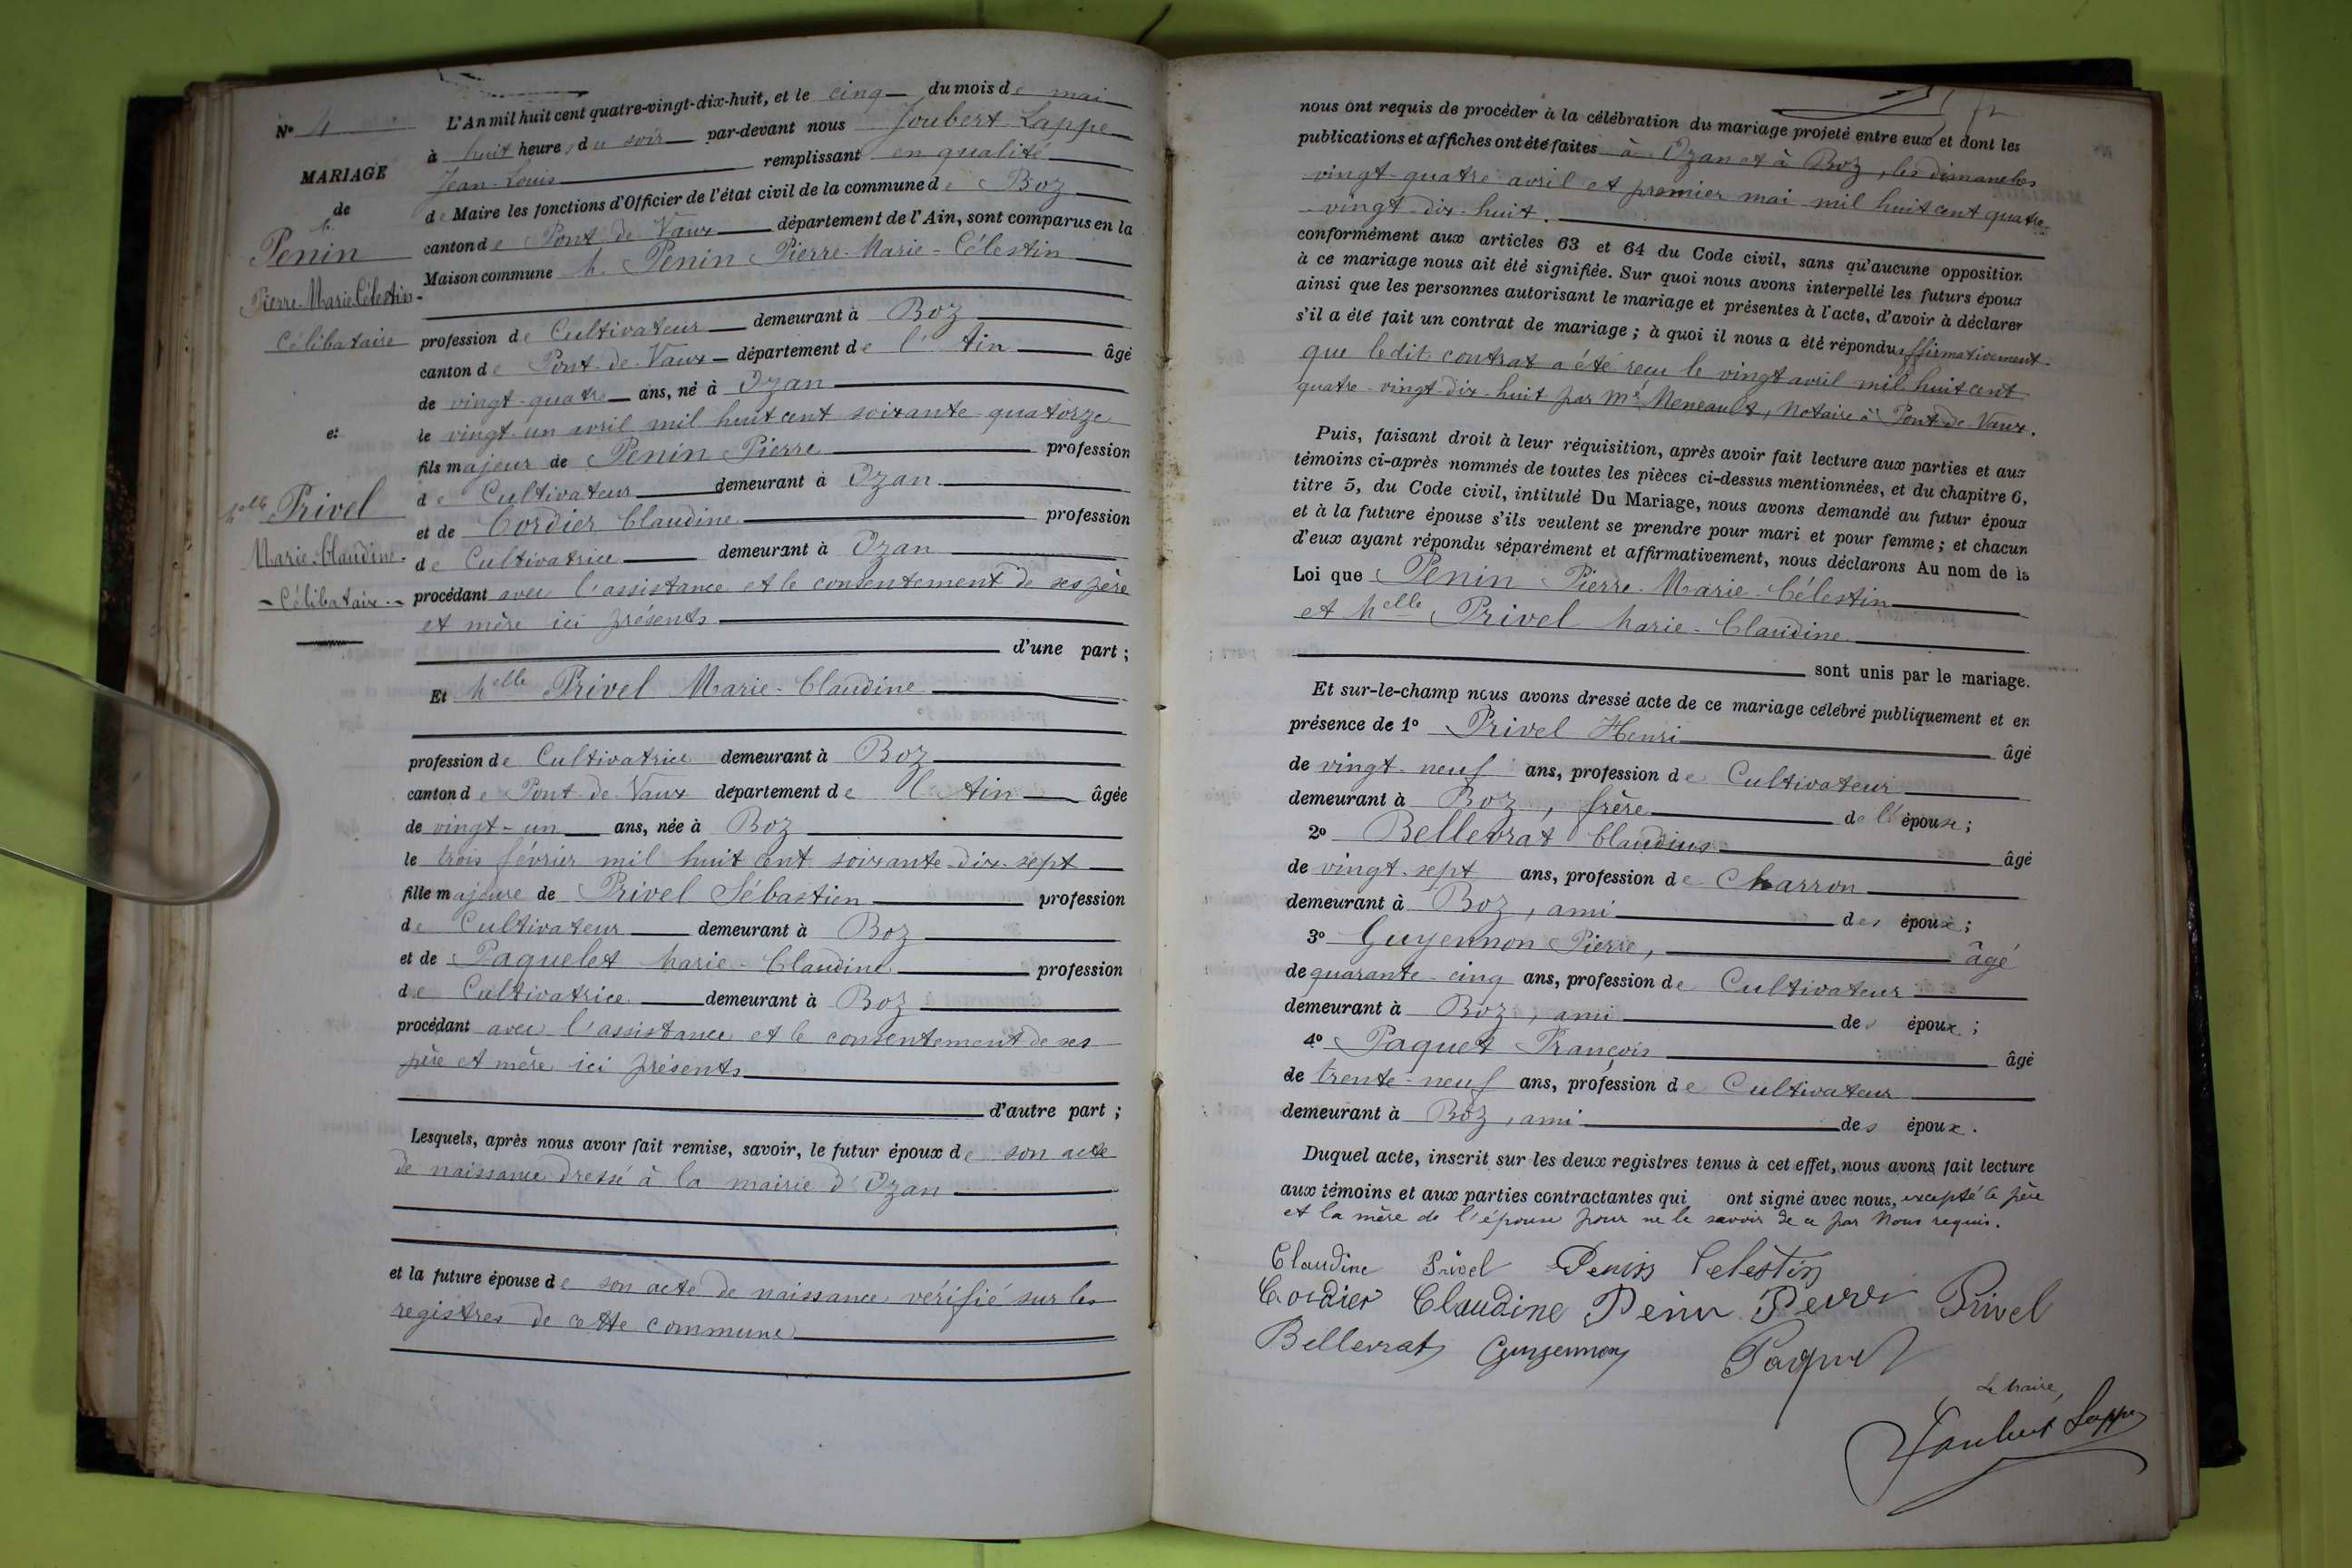 L'An mil huit cent quatre-vingt-dix-huit, et le cinq du mois de mai
N° 4
à huit heures du soir par-devant nous Joubert-Lappe
Jean-Louis remplissant en qualité
MARIAGE
de Maire les fonctions d'Officier de l'état civil de la commune de Boz
de
canton de Pont-de-Vaux département de l'Ain, sont comparus en la
M. Penin
Maison commune M. Penin Pierre-Marie-Célestin
Pierre-Marie-Célestin
Célibataire
profession de Cultivateur demeurant à Boz
canton de Pont-de-Vaux département de l'Ain âgé
de vingt-quatre ans, né à Ozan
et
le vingt-un avril mil huit cent soixante-quatorze
fils majeur de Penin Pierre profession
de Cultivateur demeurant à Ozan
Melle Privel
et de Cordier Claudine profession
Marie-Claudine
de Cultivatrice demeurant à Ozan
Célibataire
procédant avec l'assistance et le consentement de ses père
et mère ici présents
d'une part ;
Et Melle Privel Marie-Claudine
profession de Cultivatrice demeurant à Boz
canton de Pont-de-Vaux département de l'Ain âgée
de vingt-un ans, née à Boz
le trois février mil huit cent soixante-dix-sept
fille majeure de Privel Sébastien profession
de Cultivateur demeurant à Boz
et de Paquelet Marie-Claudine profession
de Cultivatrice demeurant à Boz
procédant avec l'assistance et le consentement de ses
père et mère ici présents
d'autre part ;
Lesquels, après nous avoir fait remise, savoir, le futur époux de son acte
de naissance dressé à la mairie d'Ozan
et la future épouse de son acte de naissance vérifié sur les
registres de cette commune
nous ont requis de procéder à la célébration du mariage projeté entre eux et dont les
publications et affiches ont été faites à Ozan et à Boz, les dimanches
vingt-quatre avril et premier mai mil huit cent quatre-
vingt-dix-huit.
conformément aux articles 63 et 64 du Code civil, sans qu'aucune opposition
à ce mariage nous ait été signifiée. Sur quoi nous avons interpellé les futurs époux
ainsi que les personnes autorisant le mariage et présentes à l'acte, d'avoir à déclarer
s'il a été fait un contrat de mariage ; à quoi il nous a été répondu affirmativement
que ledit contrat a été reçu le vingt avril mil huit cent
quatre-vingt-dix-huit par Me Meneault, Notaire à Pont-de-Vaux.
Puis, faisant droit à leur réquisition, après avoir fait lecture aux parties et aux
témoins ci-après nommés de toutes les pièces ci-dessus mentionnées, et du chapitre 6,
titre 5, du Code civil, intitulé Du Mariage, nous avons demandé au futur époux
et à la future épouse s'ils veulent se prendre pour mari et pour femme ; et chacun
d'eux ayant répondu séparément et affirmativement, nous déclarons Au nom de la
Loi que Penin Pierre-Marie-Célestin
et Melle Privel Marie-Claudine
sont unis par le mariage.
Et sur-le-champ nous avons dressé acte de ce mariage célébré publiquement et en
présence de 1° Privel Henri âgé
de vingt-neuf ans, profession de Cultivateur
demeurant à Boz, frère de l'épouse ;
2° Bellevrat Claudius âgé
de vingt-sept ans, profession de Charron
demeurant à Boz, ami des époux ;
3° Guyennon Pierre, âgé
de quarante-cinq ans, profession de Cultivateur
demeurant à Boz, ami des époux ;
4° Paquet François âgé
de trente-neuf ans, profession de Cultivateur
demeurant à Boz, ami des époux.
Duquel acte, inscrit sur les deux registres tenus à cet effet, nous avons fait lecture
aux témoins et aux parties contractantes qui ont signé avec nous, excepté le père
et la mère de l'épouse pour ne le savoir de ce par Nous requis.
Claudine Privel Penin Celestin
Cordier Claudine Penin Pierre Privel
Bellevrat Guyennon Paquet
Le Maire,
Joubert Lappe